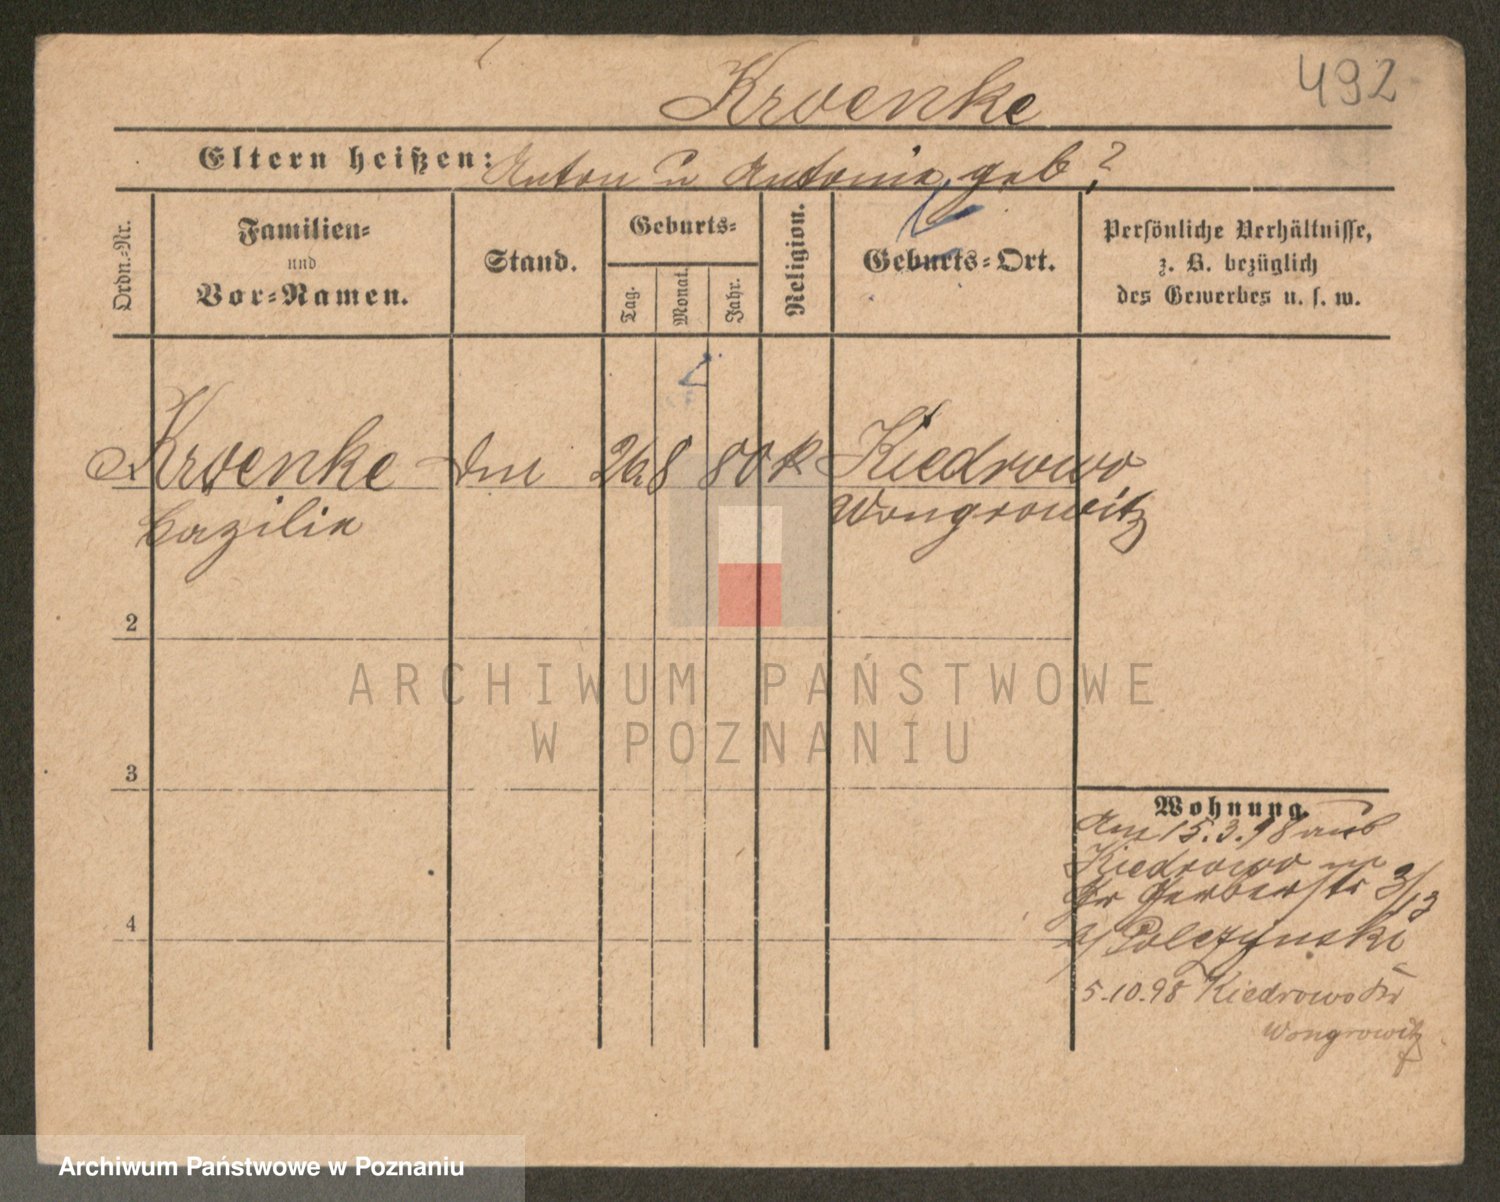 492
Kroenke
Eltern heißen: Anton u Antonie geb?
Ordn.-Nr.
Familien-
und
Vor-Namen.
Stand.
Geburts-
Tag.
Monat.
Jahr.
Religion.
Geburts-Ort.
Persönliche Verhältnisse,
z. B. bezüglich
des Gewerbes u. s. w.
Kroenke 26 8 80 k Kiedrowo
Cazilie Wongrowitz
2
3
4
Wohnung.
Am 15.3.98 aus
Kiedrowo
Gr Gerberstr 3/13
b/ Polczynski
5.10.98 Kiedrowo Kr
Wongrowitz
ARCHIWUM PAŃSTWOWE
W POZNANIU
Archiwum Państwowe w Poznaniu